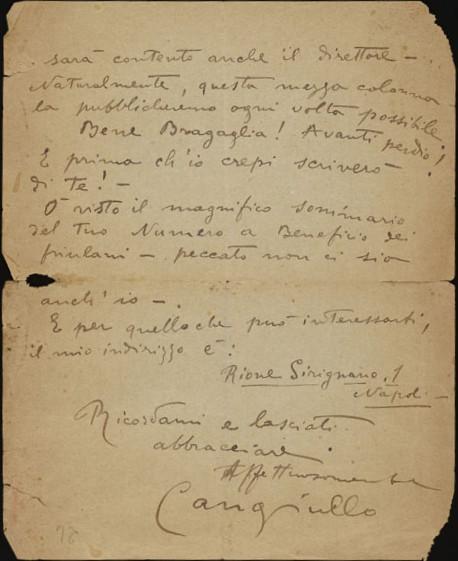 sarà contento anche il direttore —.
Naturalmente, questa mezza colonna
la pubblicheremo ogni volta possibile.
Bene Bragaglia! Avanti perdio!
E prima ch'io crepi scriverò
di te! —
Ò visto il magnifico sommario
del tuo Numero a Beneficio dei
friulani — peccato non ci sia
anch'io —.
E per quello che può interessarti,
il mio indirizzo è:
Rione Sirignano, 1
Napoli —
Ricordami e lasciati
abbracciare.
Affettuosamente
Cangiullo